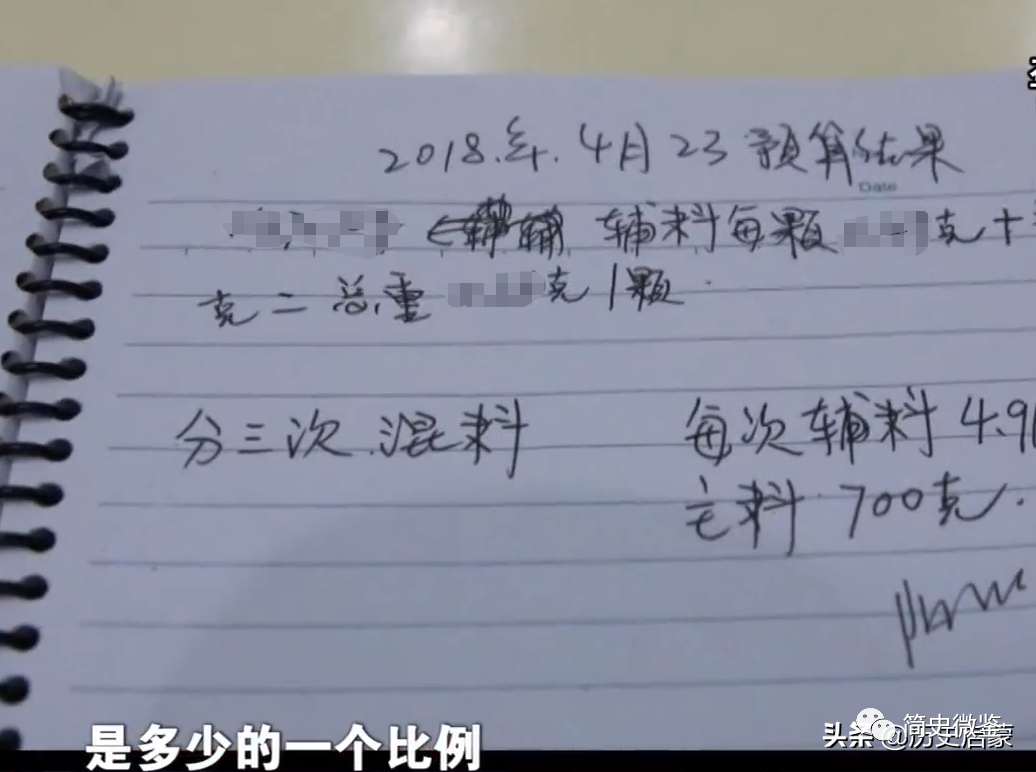 2018.年.4月23预算结果
Date
辅料每颗 克十
克二总重 克1颗.
分三次.混料
每次辅料4.9
主料.700克.
是多少的一个比例
简史微鉴
头条@历史启蒙